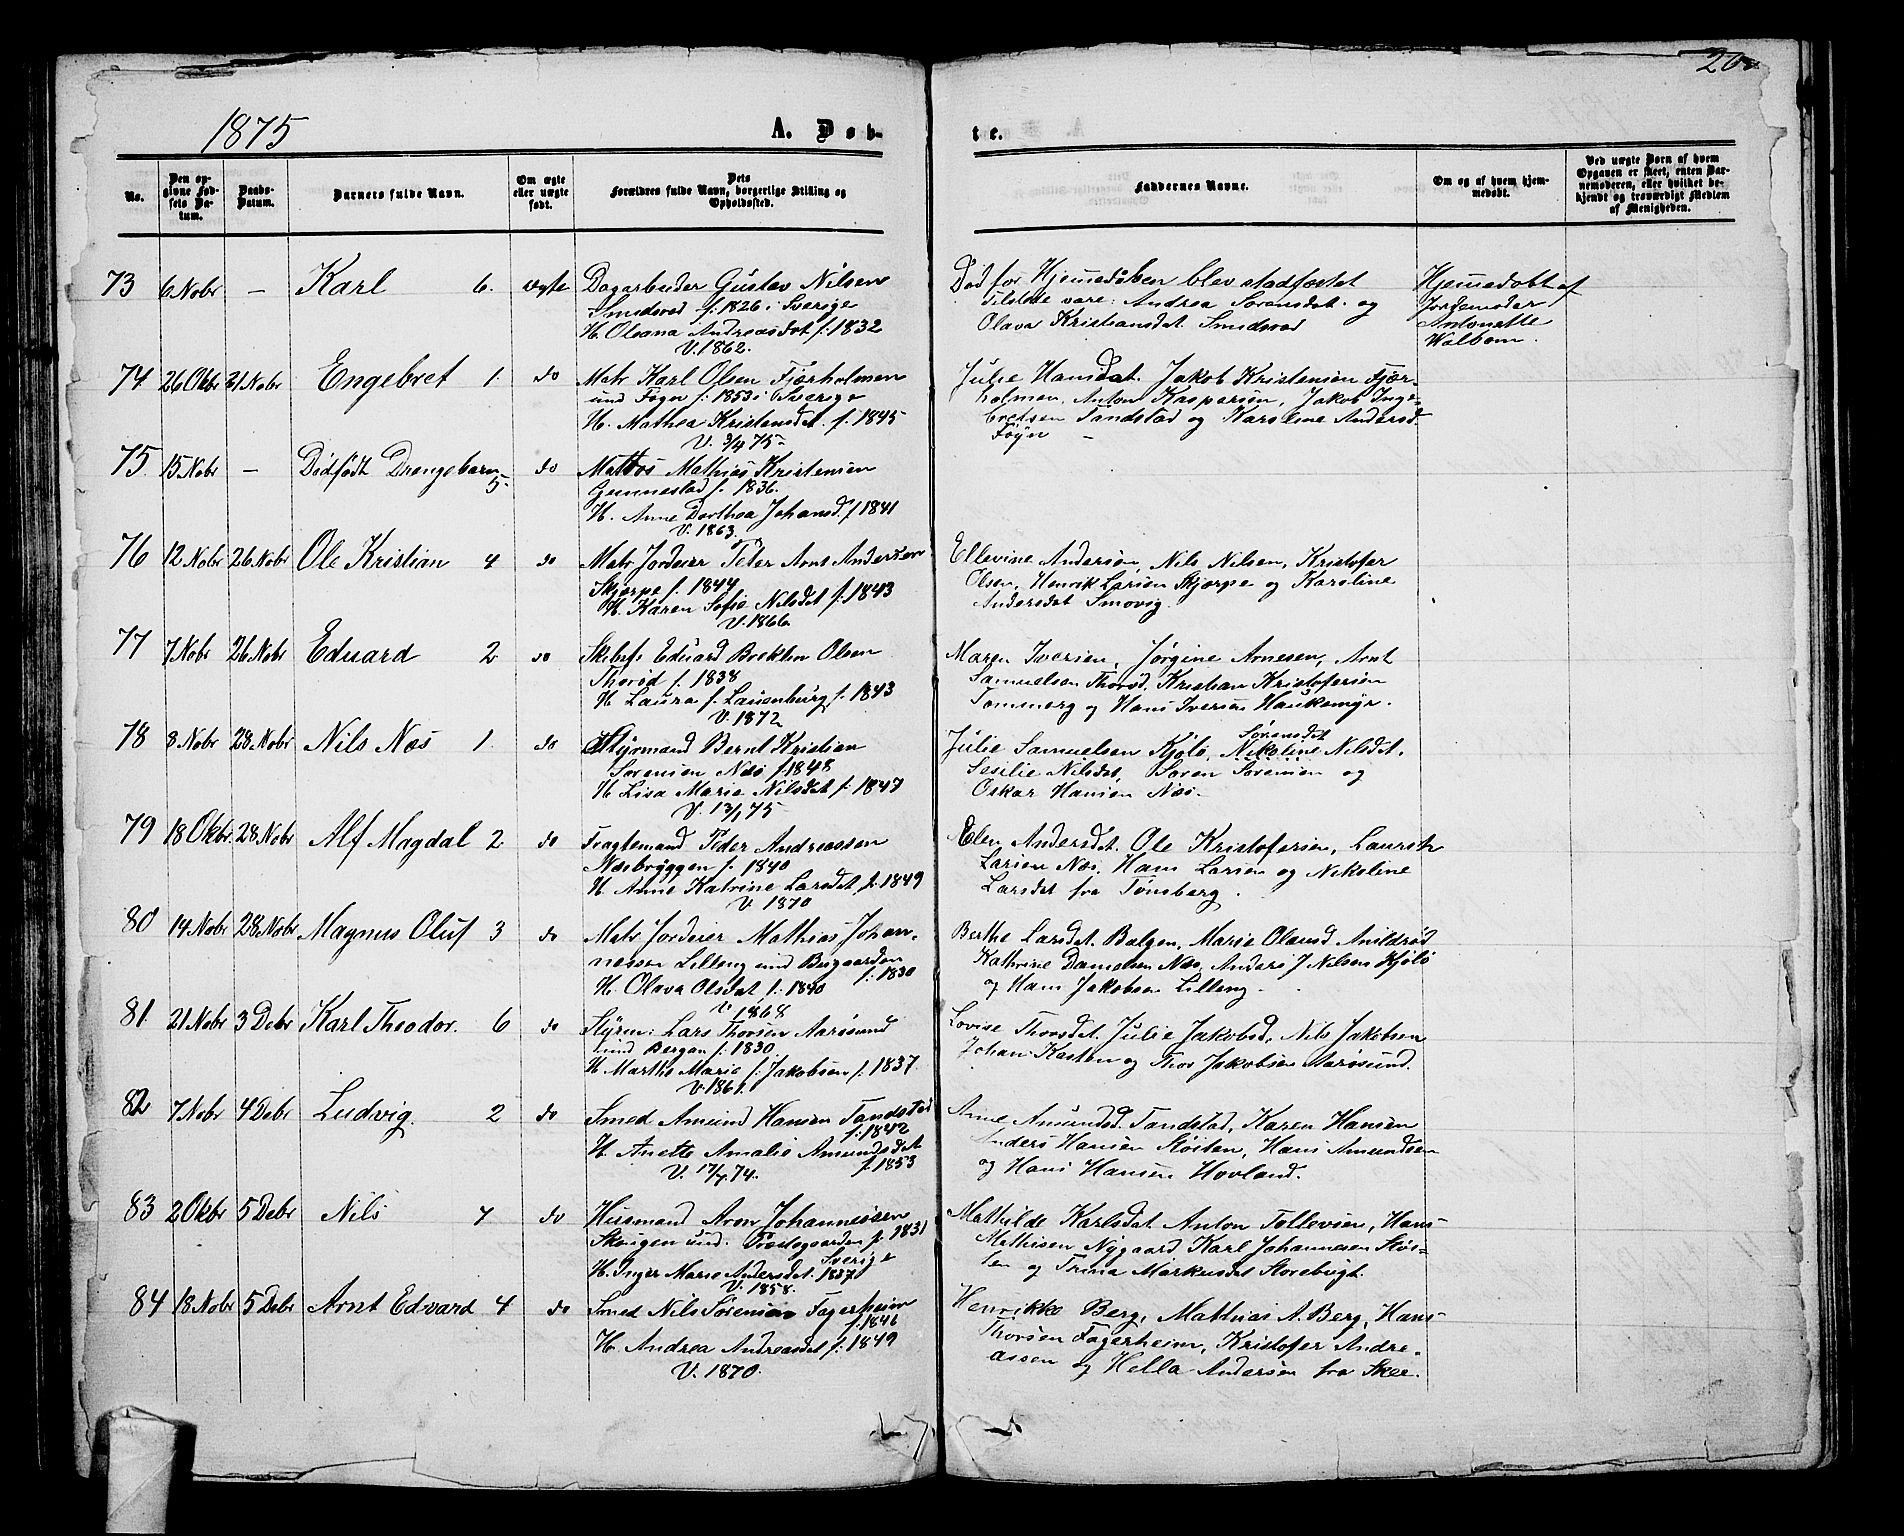 20
1875
A. Døb-
te.
No.
Den op-
givne Fød-
sels Da-
tum.
Daabs-
Datum.
Barnets fulde Navn.
Om ægte
eller uægte
født.
Dets
Forældres fulde Navn, borgerlige Stilling og
Opholdssted.
Faddernes Navne.
Om og af hvem hjem-
medøbt.
Ved uægte Børn af hvem
Opgaven er skeet, enten Bar-
nemoderen, eller hvilket be-
kjendt og troværdigt Medlem
af Menigheden.
73 6 Nobr — Karl 6. ægte Dagarbeider Gustav Nilsen
Smidsrød f: 1826 i Sverige
H. Oleana Andreasdat f: 1832
V. 1862.
Død før Hjemmedåben blev stadfæstet
Tilstede vare: Andrea Sørensdat. og
Olava Kristiansdat. Smidsrød
Hjemmedøbt af
Jordemoder
Antonette
Walbom.
74 26 Okbr 21 Nobr Engebret 1. do Matr Karl Olsen Fjærholmen
und Føyn f: 1853 i Sverige
H. Mathea Kristensdat. f. 1845
V. 3/4 75
Julie Hansdat. Jakob Kristensen Fjær-
holmen, Anton Kaspersen, Jakob Inge-
bretsen Tandstad og Karoline Andersd.
Føyn
75 15 Nobr — Dødfødt Drengebarn 5. do Matros Mathias Kristensen
Gunnestad f. 1836.
H. Anne Dorthea Johansd. f 1841
V. 1863
76 12 Nobr 26 Nobr Ole Kristian 4 do Matr Jordeier Peter Arnt Andersen
Skjerpe f. 1844
H. Karen Sofie Nilsdat f: 1843
V. 1866.
Ellevine Andersen, Nils Nilsen, Kristofer
Olsen, Henrik Larsen Skjærpe og Karoline
Andersdat Smovig.
77 7 Nobr 26 Nobr Eduard 2 do Skibsf: Eduard Bocklin Olsen
Thorød f. 1838
H Laura f. Lauenburg f. 1843
V. 1872
Maren Iversen, Jørgine Arnesen, Arnt
Samuelsen Thorød. Kristian Kristofersen
Tommerg og Hans Iversen Haukemyr.
78 8 Nobr 28 Nobr Nils Næs 1. do Styrmand Bernt Kristian
Sørensen Næs f 1848
H Lisa Marie Nilsdat f: 1847
V. 13/1 75
Sørensdat
Julie Samuelsen Kjølø, Nikoline Nilsdat,
Sesilie Nilsdat, Søren Sørensen og
Oskar Hansen Næs.
79 18 Okbr. 28 Nobr Alf Magdal 2 do Fragtemand Peder Andreassen
Næsbryggen f. 1840
H. Anne Katrine Larsdat f. 1849
V 1870
Elen Andersdat, Ole Kristofersen, Lauritz
Larsen Næs, Hans Larsen og Nikoline
Larsdat fra Tønsberg.
80 14 Nobr 28 Nobr Magnus Oluf 3 do Matr Jordeier Mathias Johan-
nessen Lilleng und Bergaarden
f: 1830
H Olava Olsdat f: 1840
V 1868
Berthe Larsdat. Bulgen, Marie Olausd Anildrød
Kathrine Danielsen Næs, Anders J Nilsen Kjølø
og Hans Jakobsen Lilleng.
81. 21 Nobr 3 Debr Karl Theodor. 6 do Styrm: Lars Thorsen Aarøsund
und Bergan f: 1830
H Marthe Marie f: Jakobsen f: 1837.
V. 1861.
Lovise Thorsdat. Julie Jakobsd, Nils Jakobsen
Johan Kasten og Thor Jakobsen Aarøsund.
82 7 Nobr 4 Debr Ludvig. 2 do Smed Amund Hansen Tandstad
f: 1842
H Anette Amalie Amundsdat
f. 1853
V. 17/4 74.
Anne Amundsd. Tandstad, Karen Hansen
Anders Hansen Støiten, Hans Amundsen
og Hans Hansen Hovland.
83 2 Okbr 5 Debr Nils 7 do Husmand Aron Johannessen
Skougen und. Præstegaarden f 1831
Sverige
H. Inger Marie Andersdat. 1837
V. 1858.
Mathilde Karlsdat Anton Tollevsen, Hans
Mathisen Nygaard. Karl Johannesen Støi-
ten og Trina Markusdat Storebugt.
84 18 Nobr 5 Debr Arnt Edvard 4 do Smed Nils Sørensen Fagerheim
f: 1846
H. Andrea Andreasdat f: 1849
V. 1870.
Henrikke Berg, Mathias A. Berg, Hans
Thorsen Fagerheim, Kristofer Andre-
assen og Hella Andersen fra Skee.